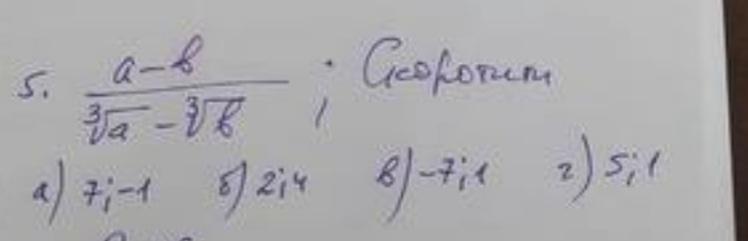 5. (a-в)/(∛a - ∛в) ; Скоротити
а) 7;-1 б) 2;4 в) -7;1 г) 5;1